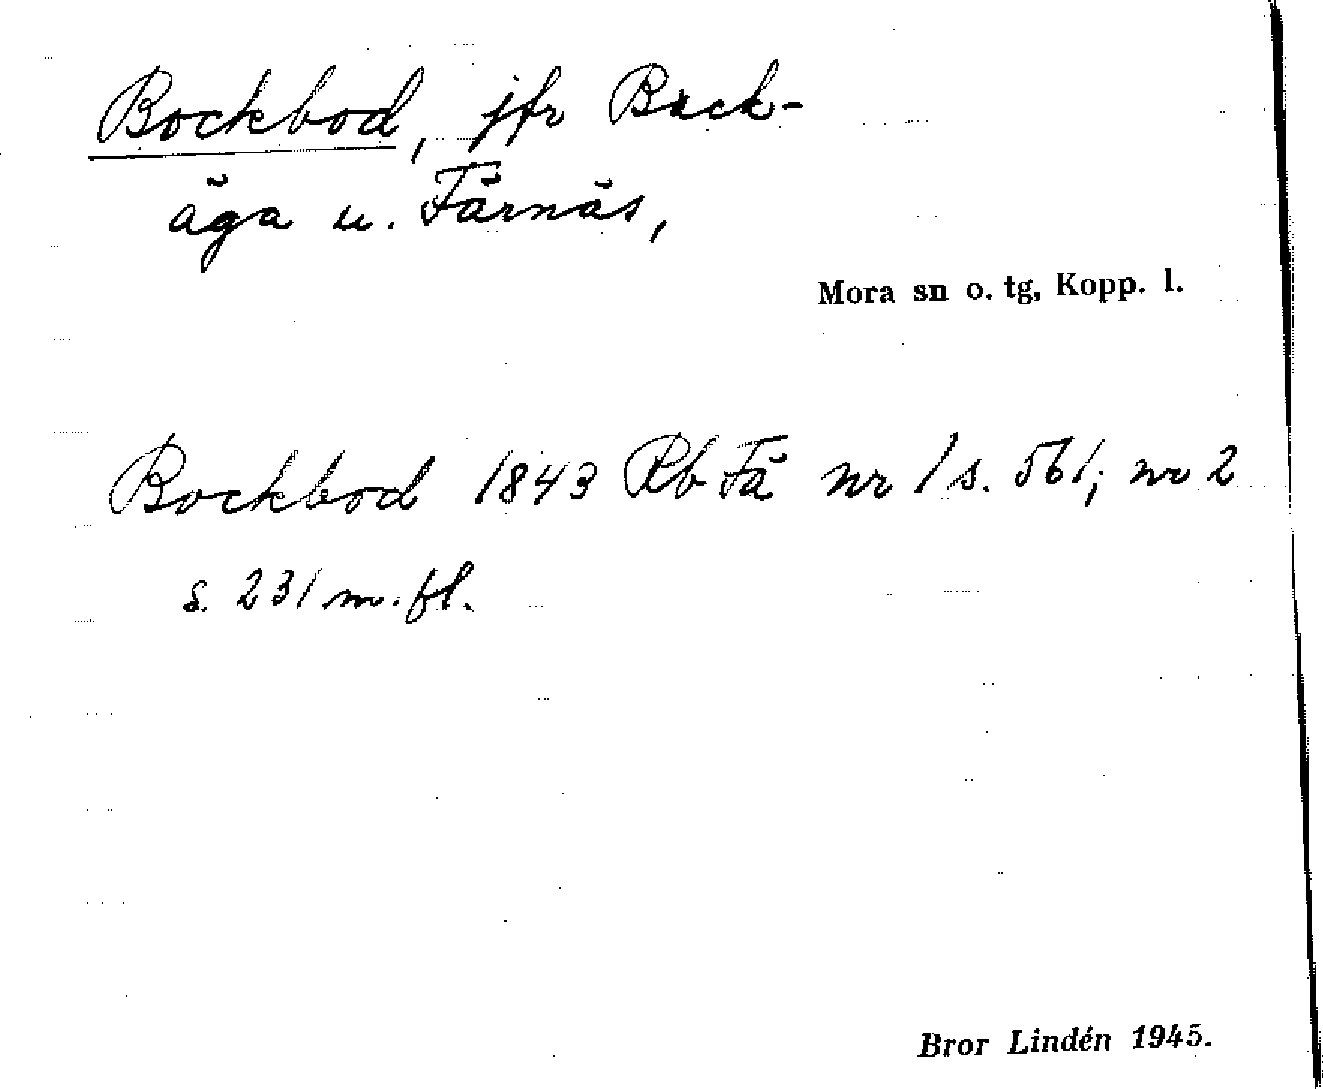 Bockbod, jfr Back-
äga u. Färnäs,
Mora sn o. tg, Kopp. l.
Bockbod 1843 Rb Fä nr 1 s. 561; nr 2
s. 231 m. fl.
Bror Lindén 1945.